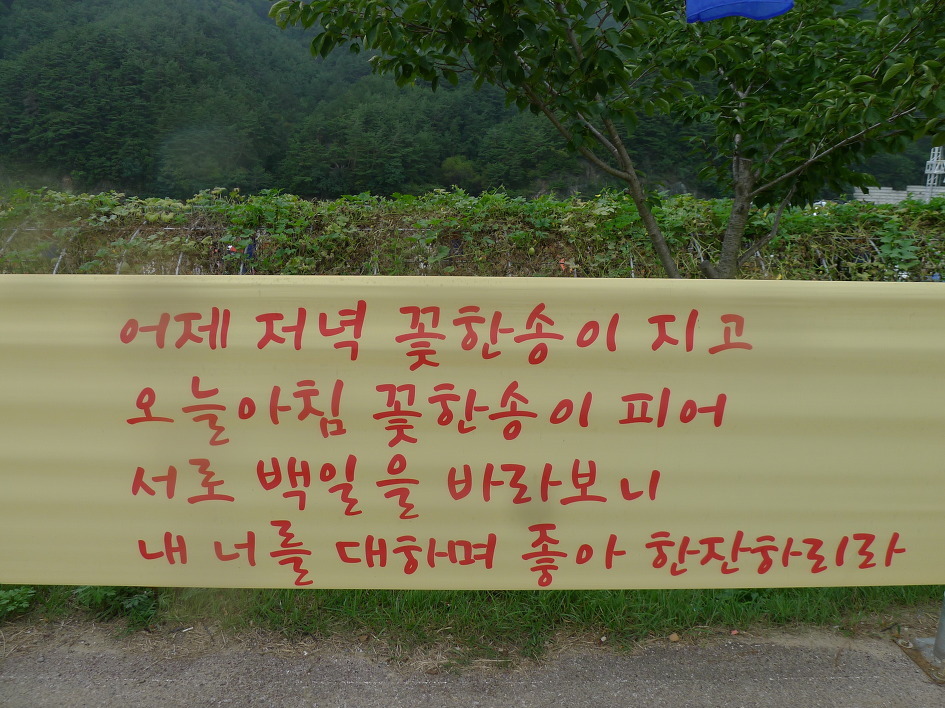 어제 저녁 꽃한송이 지고
오늘아침 꽃한송이 피어
서로 백일을 바라보니
내 너를 대하며 좋아 한잔하리라